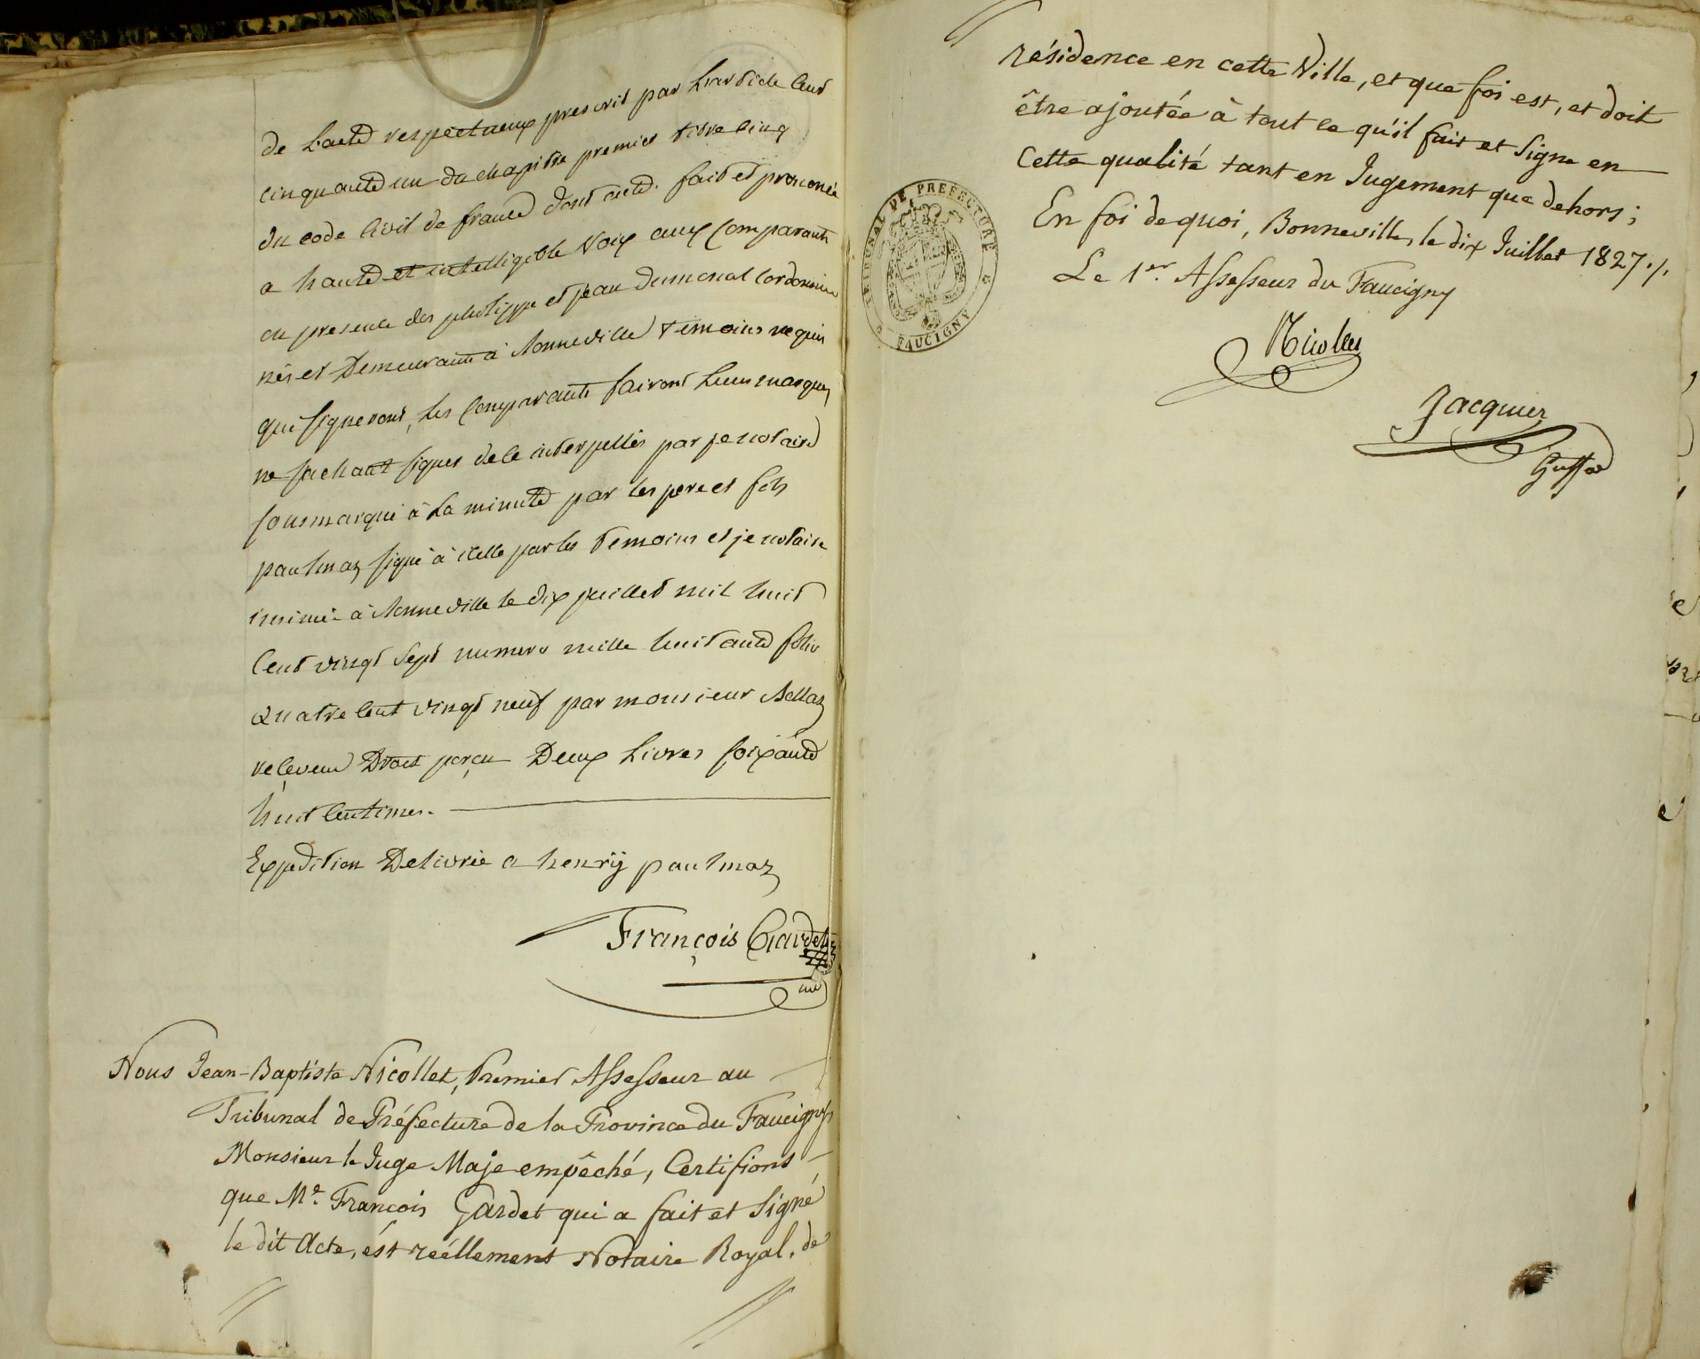 de L'acte respectueux prescrit par L'article Cent
cinquante un du chapitre premier titre cinq
du code Civil de france dont acte. fait et prononcé
a haute et intelligible Voix aux Comparants
en presence des philippe et jean dumonal Cordonniers
nés et Demeurants à Bonneville temoins requis
qui signeront, Les Comparants fairont Leurs marques
ne sachant signer de ce interpellés par je notaire
sousmarqué à La minute par les pere et fils
paulmaz signé à icelle par les temoins et je notaire
insinué à Bonneville le dix juillet mil huit
Cent vingt sept numero mille huit cent folio
Quatre Cent vingt neuf par monsieur
receveur Droit perçu Deux Livres soixante
huit Centimes.
Expedition Delivrée a henrÿ paulmaz
François Gardet
Nous Jean-Baptiste Nicollet, Premier Assesseur au
Tribunal de Préfecture de la Province du Faucigny,
Monsieur le Juge Maje empêché, Certifions
que Me. François Gardet qui a fait et Signé
le dit Acte, ést reéllement Notaire Royal, de
résidence en cette Ville, et que foi est, et doit
être ajoutée à tout ce qu'il fait et Signe en
Cette qualité tant en Jugement que dehors;
En foi de quoi, Bonneville, le dix Juillet 1827 ./.
Le 1er. Assesseur du Faucigny
TRIBUNAL DE PREFECTURE
FAUCIGNY
Nicollet
Jacquier
Greffer